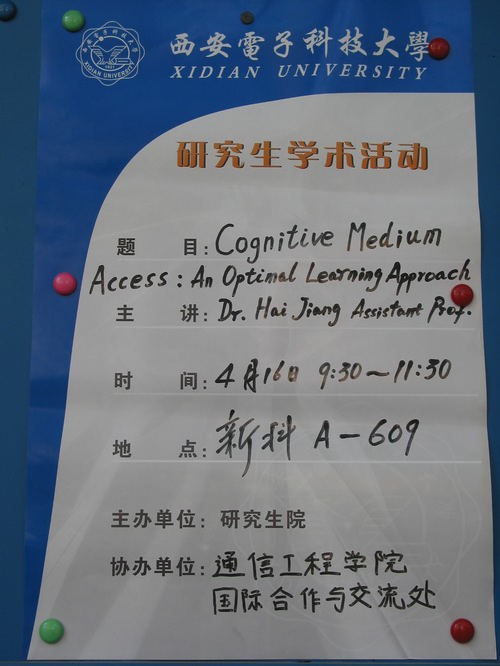 西安電子科技大學
XIDIAN UNIVERSITY
XIDIAN UNIVERSITY
研究生学术活动
题 目: Cognitive Medium
Access: An Optimal Learning Approach
主 讲: Dr. Hai Jiang Assistant Prof.
时 间: 4月16日 9:30~11:30
地 点: 新科 A-609
主办单位: 研究生院
协办单位: 通信工程学院
国际合作与交流处